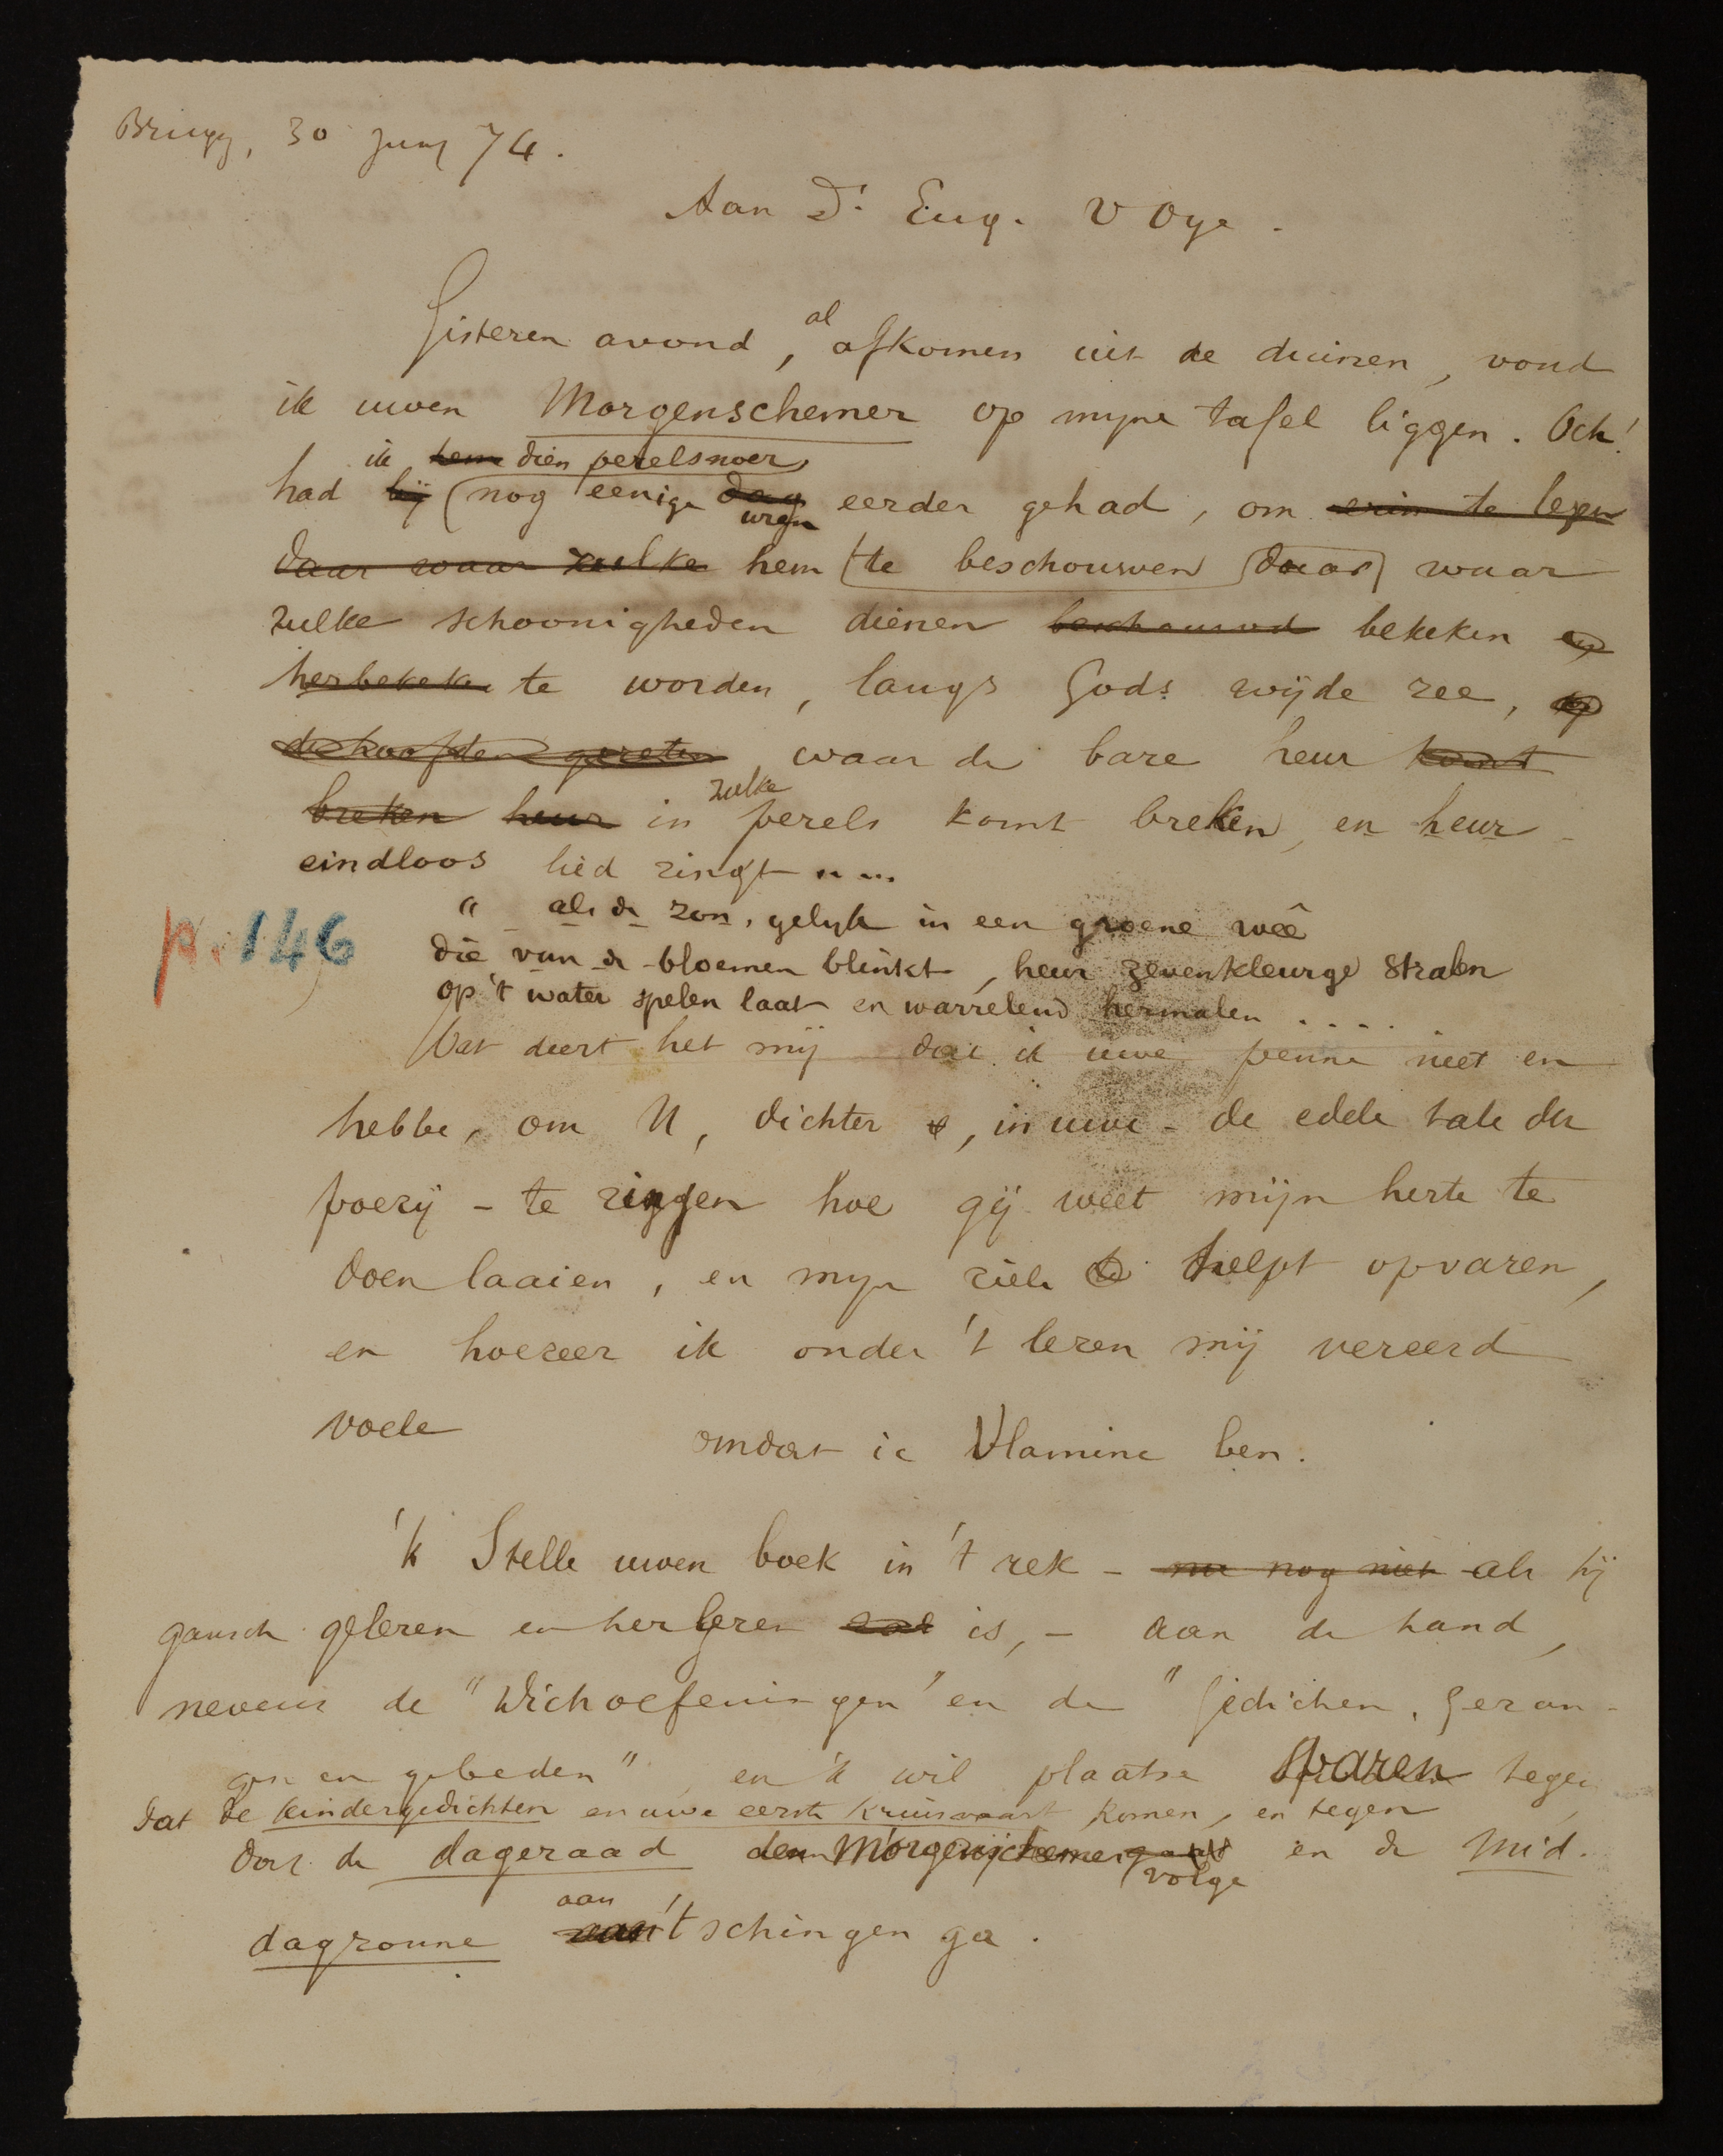 Brugg, 30 Juny 74.
Aan Dr. Eug. V Oye.
Gisteren avond, al afkomen uit de duinen, vond
ik uwen Morgenschemer op myne tafel liggen. Och!
ik hem dien perelsnoer
had hij nog eenige dag eerder gehad, om erin te lezen
uren
daar waar zulke hem te beschouwen daar waar
zulke schoonigheden dienen beschouwd bekeken en
herbekeken te worden, langs Gods wijde zee, op
de hoofden gezeten waar de bare heur komt
zulke
breken heur in perels komt breken, en heur
eindloos lied zingt .. ...
" als de zon, gelyk in een groene wêe
p. 146
die van de bloemen blinkt, heur zevenkleurge stralen
op 't water spelen laat en warrelend hermalen .....
Wat deert het mij dat ik uwe penne niet en
hebbe, om U, dichter, in uwe - de edele tale der
poezij - te zingen hoe gij weet mijn herte te
doen laaien, en myn ziele te helpt opvaren,
en hoezeer ik onder 't lezen mij vereerd
voele omdat ic Vlaminc ben.
'k Stelle uwen boek in 't rek - nu nog niet als hij
gansch gelezen en herlezen zal is, - aan de hand,
nevens de "Dichoefeningen" en de "Gedichten, Gezan-
gen en gebeden", en 'k wil plaatse sparen tegen
dat de kindergedichten en uwe eerste kruisvaart komen, en tegen
dat de dageraad den Morgenschemer en de Mid-
volge
aan
dagzonne van 't schingen ga.